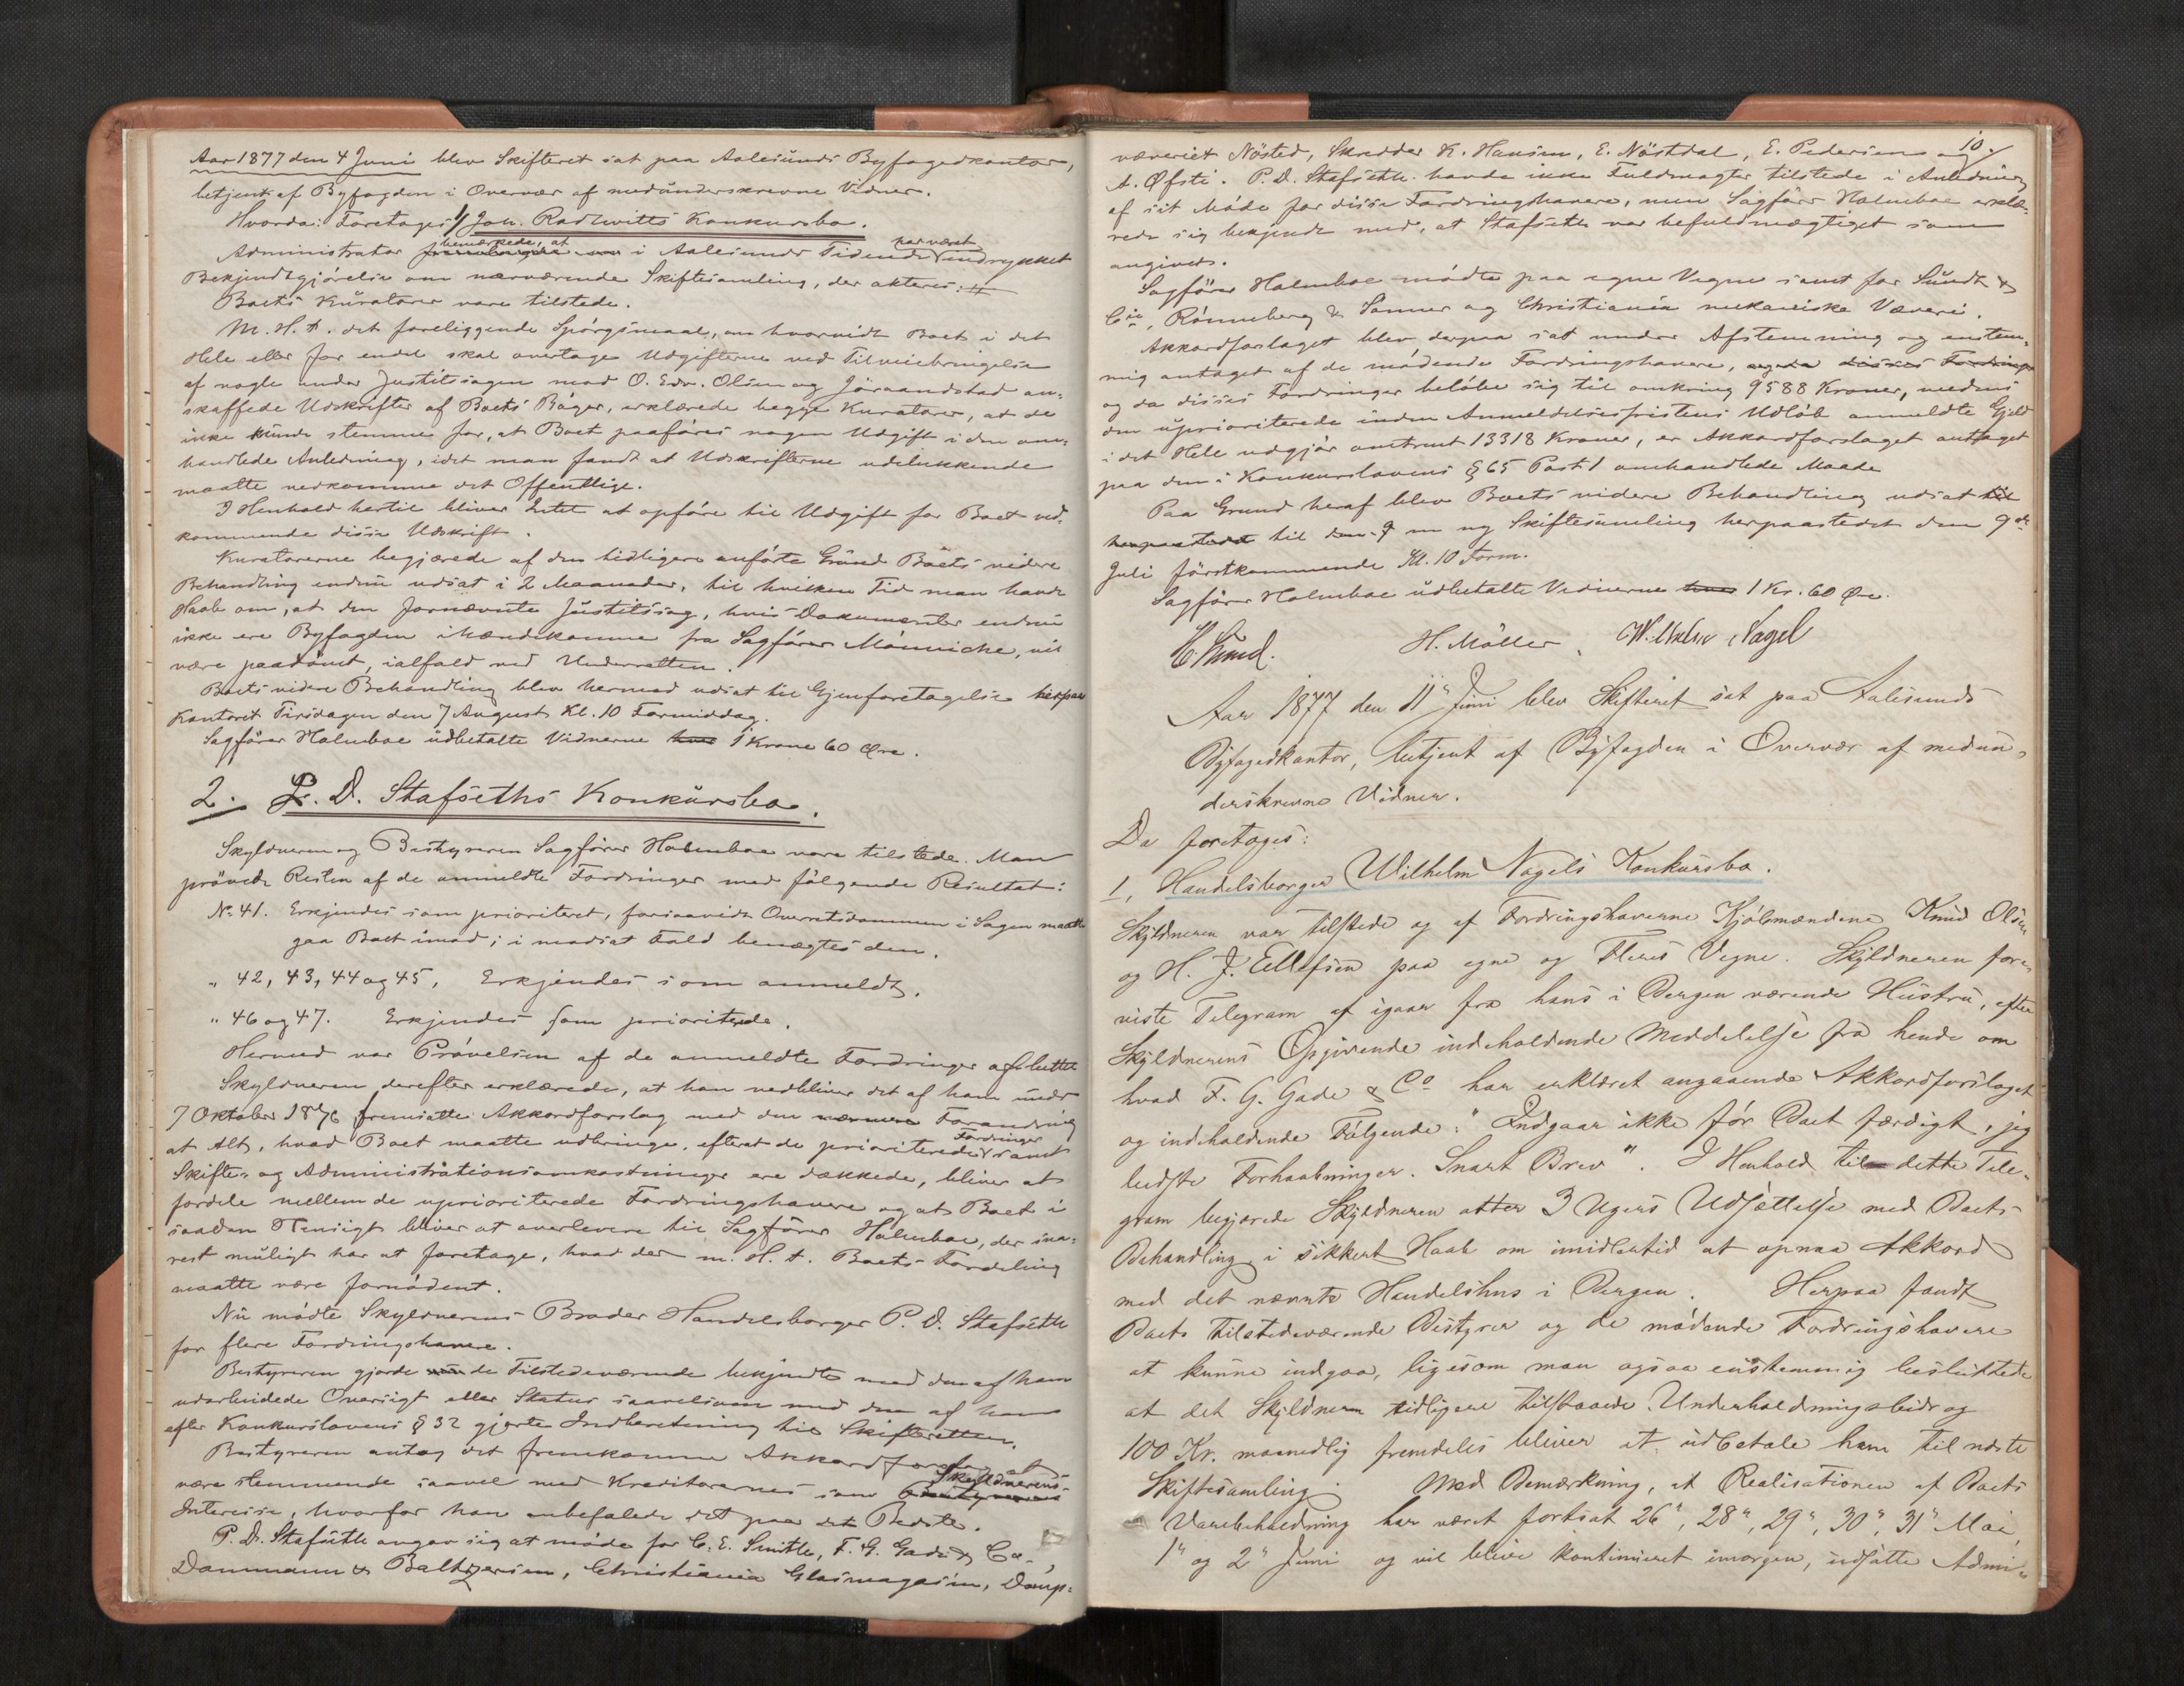 Aar 1877 den 4 Juni blev Skifteret sat paa Aalesunds Byfogedkontor,
betjent af Byfogden i Overvær af medunderskrevne Vidner.
Hvorda: Foretages 1/ Joh. Radlwitts Konkursbo.
bemærkede, at har været
Administrator fremlagde i Aalesunds Tidende indrykket
Bekjendtgjörelse om nærværende Skiftesamling, der akteres:
Boets Kuratorer vare tilstede.
M. H. t. det foreliggende Spörgsmaal, om hvorvidt Boet i det
Hele eller for endel skal overtage Udgifterne ved Tilveiebringelse
af nogle under Justitssagen mod O. Edv. Olsen og Jöraandstad an-
skaffede Udskrifter af Boets Böger, erklærede begge Kuratorer, at de
ikke kunde stemme for, at Boet paaföres nogen Udgift i den om-
handlede Anledning, idet man fandt at Udskrifterne udelukkende
maatte vedkomme det Offentlige.
I Henhold hertil bliver Intet at opföre til Udgift for Boet ved-
kommende disse Udskrift.
Kuratorerne begjærede af den tidligere anförte Grund Boets videre
Behandling endnu udsat i 2 Maaneder, til hvilken Tid man havde
Haab om, at den fornævnte Justitssag, hvis Dokumenter endnu
ikke ere Byfogden ihændekomne fra Sagförer Mönniche, vil
være paadömt, ialfald ved Underretten.
Boets videre Behandling blev hermed udsat til Gjenforetagelse herpaa
Kontoret Tirsdagen den 7 August Kl. 10 Formiddag.
Sagförer Holmboe udbetalte Vidnerne hver 1 Krone 60 Øre.
2. P. D. Stafseths Konkursbo.
Skyldneren og Bestyreren Sagförer Holmboe vare tilstede. Man
prövede Resten af de anmeldte Fordringer med fölgende Resultat:
No 41. Erkjendes som prioriteret, forsaavidt Overretsdommen i Sagen maatte
gaa Boet imod; i modsat Fald benægtes den.
" 42, 43, 44 og 45, Erkjendes som anmeldt.
" 46 og 47. Erkjendes som prioriterede.
Hermed var Prövelsen af de anmeldte Fordringer afsluttet
Skyldneren derefter erklærede, at han vedbliver det af ham under
7 Oktober 1876 fremsatte Akkordforslag med den nærmere Forandring
at Alt, hvad Boet maatte udbringe, efterat de prioriterede Fordringer samt
Skifte- og Administrationsomkostninger ere dækkede, bliver at
fordele mellem de uprioriterede Fordringshavere og at Boet i
saadan Hensigt bliver at overlevere til Sagförer Holmboe, der sna-
rest muligt har at foretage, hvad der m. H. t. Boets Fordeling
maatte være fornödent.
Nu mödte Skyldnerens Broder Handelsborger P. D. Stafseth
for flere Fordringshavere.
Bestyreren gjorde nu de Tilstedeværende bekjendte med den af ham
udarbeidede Oversigt eller Status saavelsom med den af ham
efter Konkurslovens § 32 gjorte Indberetning til Skifteretten.
Bestyreren antog det fremkomne Akkordforslag at
være stemmende saavel med Kreditorernes som Skyldnerens
Interesse, hvorfor han anbefalede det paa det Bedste.
P. D. Stafseth angav sig at möde for C. E. Smith, F. G. Gade & Co.,
Dammann & Baltzersen, Christiania Glasmagasin, Damp-
10.
væveriet Nösted, Skrædder K. Hansen, E. Nöstdal, E. Pedersen og
A. Øfsti. P. D. Stafseth havde ikke Fuldmagter tilstede i Anledning
af sit Möde for disse Fordringshavere, men Sagförer Holmboe erklæ-
rede sig bekjendt med, at Stafseth var befuldmægtiget som
angivet.
Sagförer Holmboe mödte paa egne Vegne samt for Sundt &
Cie, Rönneberg & Sönner og Christiania mekaniske Væveri.
Akkordforslaget blev derpaa sat under Afstemning og enstem-
mig antaget af de mödende Fordringshavere, og da disses Fordringer
og da disses Fordringer belöbe sig til omkring 9588 Kroner, medens
den uprioriterede inden Anmeldelsesfristens Udlöb anmeldte Gjeld
i det Hele udgjör omtrent 13318 Kroner, er Akkordforslaget antaget
paa den i Konkurslovens § 65 Post 1 omhandlede Maade
Paa Grund heraf blev Boets videre Behandling udsat til
herpaastedet til den 9 en ny Skiftesamling herpaastedet den 9de
Juli förstkommende Kl. 10 Form.
Sagförer Holmboe udbetalte Vidnerne hver 1 Kr. 60 Øre.
H. Möller, Wilhelm Nagel
Aar 1877 den 11te Juni blev Skifteret sat paa Aalesunds
Byfogedkontor, betjent af Byfogden i Overvær af medun-
derskrevne Vidner.
Da foretoges:
1, Handelsborger Wilhelm Nagels Konkursbo.
Skyldneren var tilstede og af Fordringshaverne Kjöbmændene Knud Olsen
og H. J. Ellefsen paa egne og Fleres Vegne. Skyldneren fore-
viste Telegram af igaar fra hans i Bergen værende Hustru, efter
Skyldnerens Opgivende indeholdende Meddelelse fra hende om
hvad F. G. Gade & Co har erklæret angaaende Akkordforslaget
og indeholdende Fölgende: "Indgaar ikke för Boet færdigt, jeg
bedste Forhaabninger. Snart Brev". I Henhold til dette Tele-
gram begjærede Skyldneren atter 3 Ugers Udsættelse med Boets
Behandling i sikkert Haab om imidlertid at opnaa Akkord
med det nævnte Handelshus i Bergen. Herpaa fandt
Boets tilstedeværende Bestyrer og de mödende Fordringshavere
at kunne indgaa, ligesom man ogsaa enstemmig besluttede
at det Skyldneren tidligere tilstaaede Underholdningsbidrag
100 Kr. maanedlig fremdeles bliver at udbetale ham til næste
Skiftesamling. Med Bemærkning, at Realisationen af Boets
Varebeholdning har været fortsat 26", 28", 29", 30", 31" Mai,
1" og 2" Juni og vil blive kontinueret imorgen, udsatte Admi-